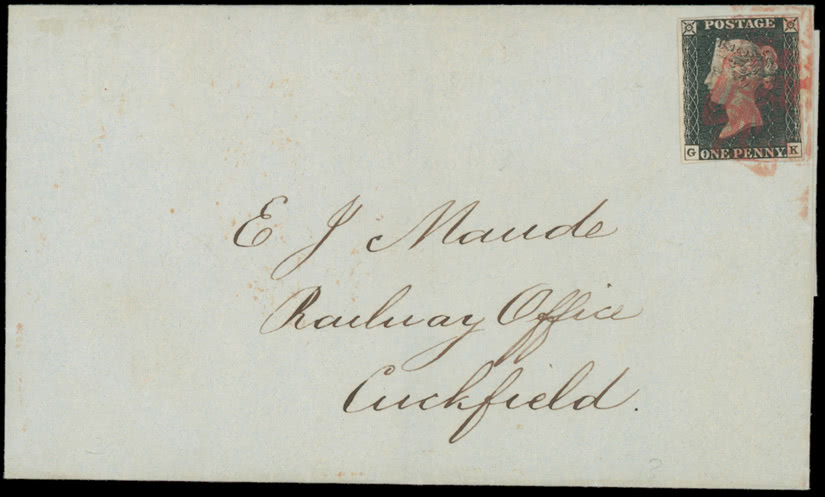 POSTAGE
G ONE PENNY K
E J Maude
Railway Office
Cuckfield.